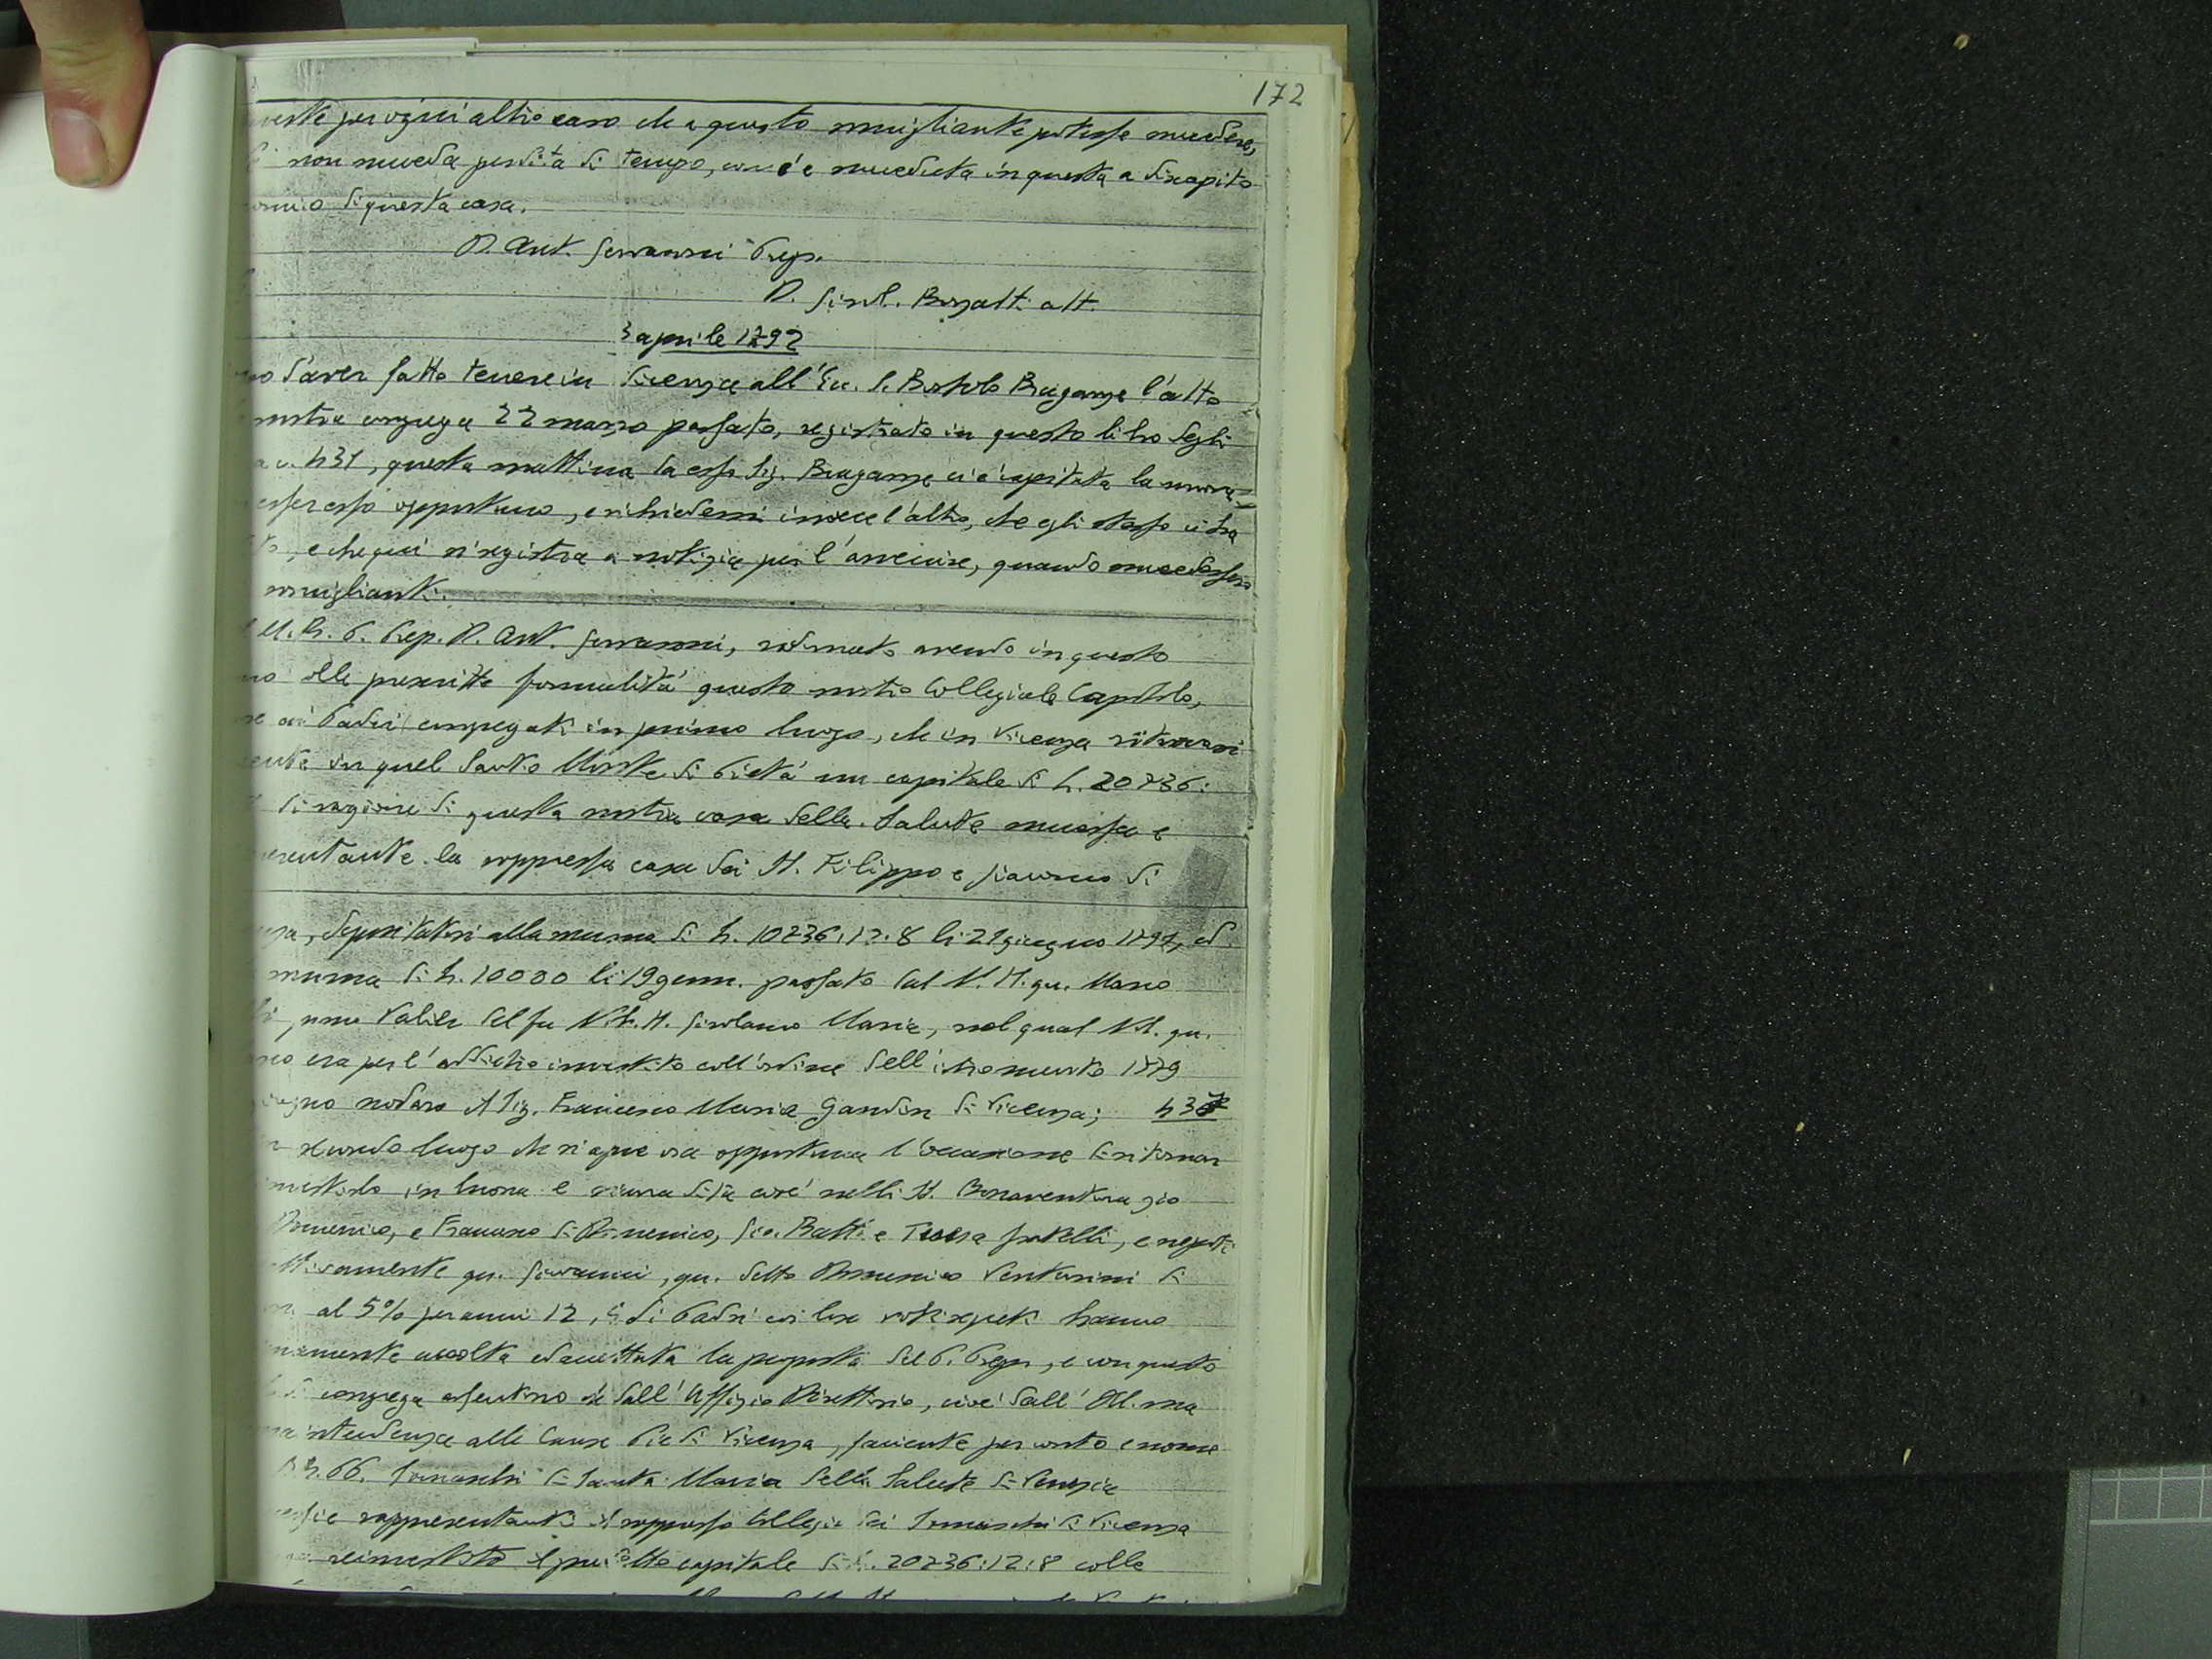 172
per ogni altro caso che a questo somigliante potesse succedere,
non succeda perdita di tempo, com'è succeduta in questa a discapito
di questa casa.
D. Ant. Gervasoni Prep.
D. Girol. Bozatti att.
3 aprile 1792
d'aver fatto tenere in Vicenza all'Ecc. S. Bortolo Braganze l'atto
nostra congrega 22 marzo passato, registrato in questo libro degli
a c. 431, questa mattina da esso Sig. Braganze ci è capitata la nuova
esser esso opportuno, e richiedersi invece l'altro, che egli stesso ci ha
e che qui si registra a notizia per l'avvenire, quando succedessero
somiglianti.
M. R. P. Prep. D. Ant. Gervasoni, radunato avendo in questo
colle prescritte formalità questo nostro Collegiale Capitolo,
ai Padri congregati in primo luogo, che in Vicenza ritrovasi
in quel Santo Monte di Pietà un capitale di L. 20236:
di ragione di questa nostra casa della Salute successa e
la soppressa casa dei SS. Filippo e Giacomo di
depositatosi alla summa di L. 10236:12:8 li 21 giugno 1791, ed
summa di L. 10000 li 19 genn. passato dal N. H. qu. Marco
Valier del fu N. H. Girolamo Maria, nel qual N.H. qu.
era per l'addietro investito coll'ordine dell'istromento 1779
nodaro il Sig. Francesco Maria Gandin di Vicenza; 436
secondo luogo che si apre ora opportuna l'occasione di ritornar
investirlo in buona e sicura ditta cioè nelli SS. Bonaventura zio
Domenico, e Francesco di Domenico, Gio. Batt. e Teresa fratelli, e nepoti
qu. Giovanni, qu. detto Domenico Venturini di
al 5% per anni 12, e di Padri coi loro voti segreti hanno
accolta ed accettata la proposta del P. Prep., e con questo
congrega assentono che dall'Uffizio Direttorio, cioè dall'Ill.ma
alle Cause Pie di Vicenza, faciente per conto e nome
RR. PP. Somaschi di Santa Maria della Salute di Venezia
rappresentanti il soppresso Collegio dei Somaschi di Vicenza
reinvestito il predetto capitale di L. 20236:12:8 colle